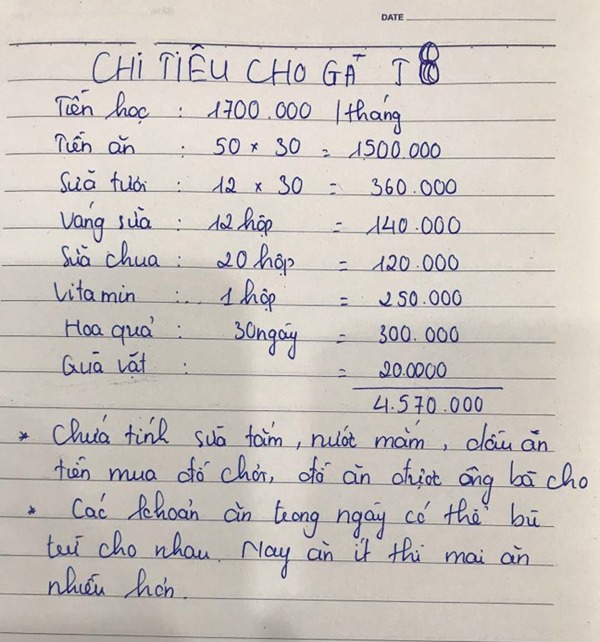 DATE
CHI TIÊU CHO GÀ T8
Tiền học : 1700.000 /tháng
Tiền ăn : 50 × 30 = 1500.000
Sữa tươi : 12 × 30 = 360.000
Váng sữa : 12 hộp = 140.000
Sữa chua : 20 hộp = 120.000
Vitamin : .. 1 hộp = 250.000
Hoa quả : 30 ngày = 300.000
Quà vặt : = 20.0000
4.570.000
* Chưa tính sữa tắm, nước mắm, dầu ăn
tiền mua đồ chơi, đồ ăn được ông bà cho
* Các khoản ăn trong ngày có thể bù
trừ cho nhau. Nay ăn ít thì mai ăn
nhiều hơn.